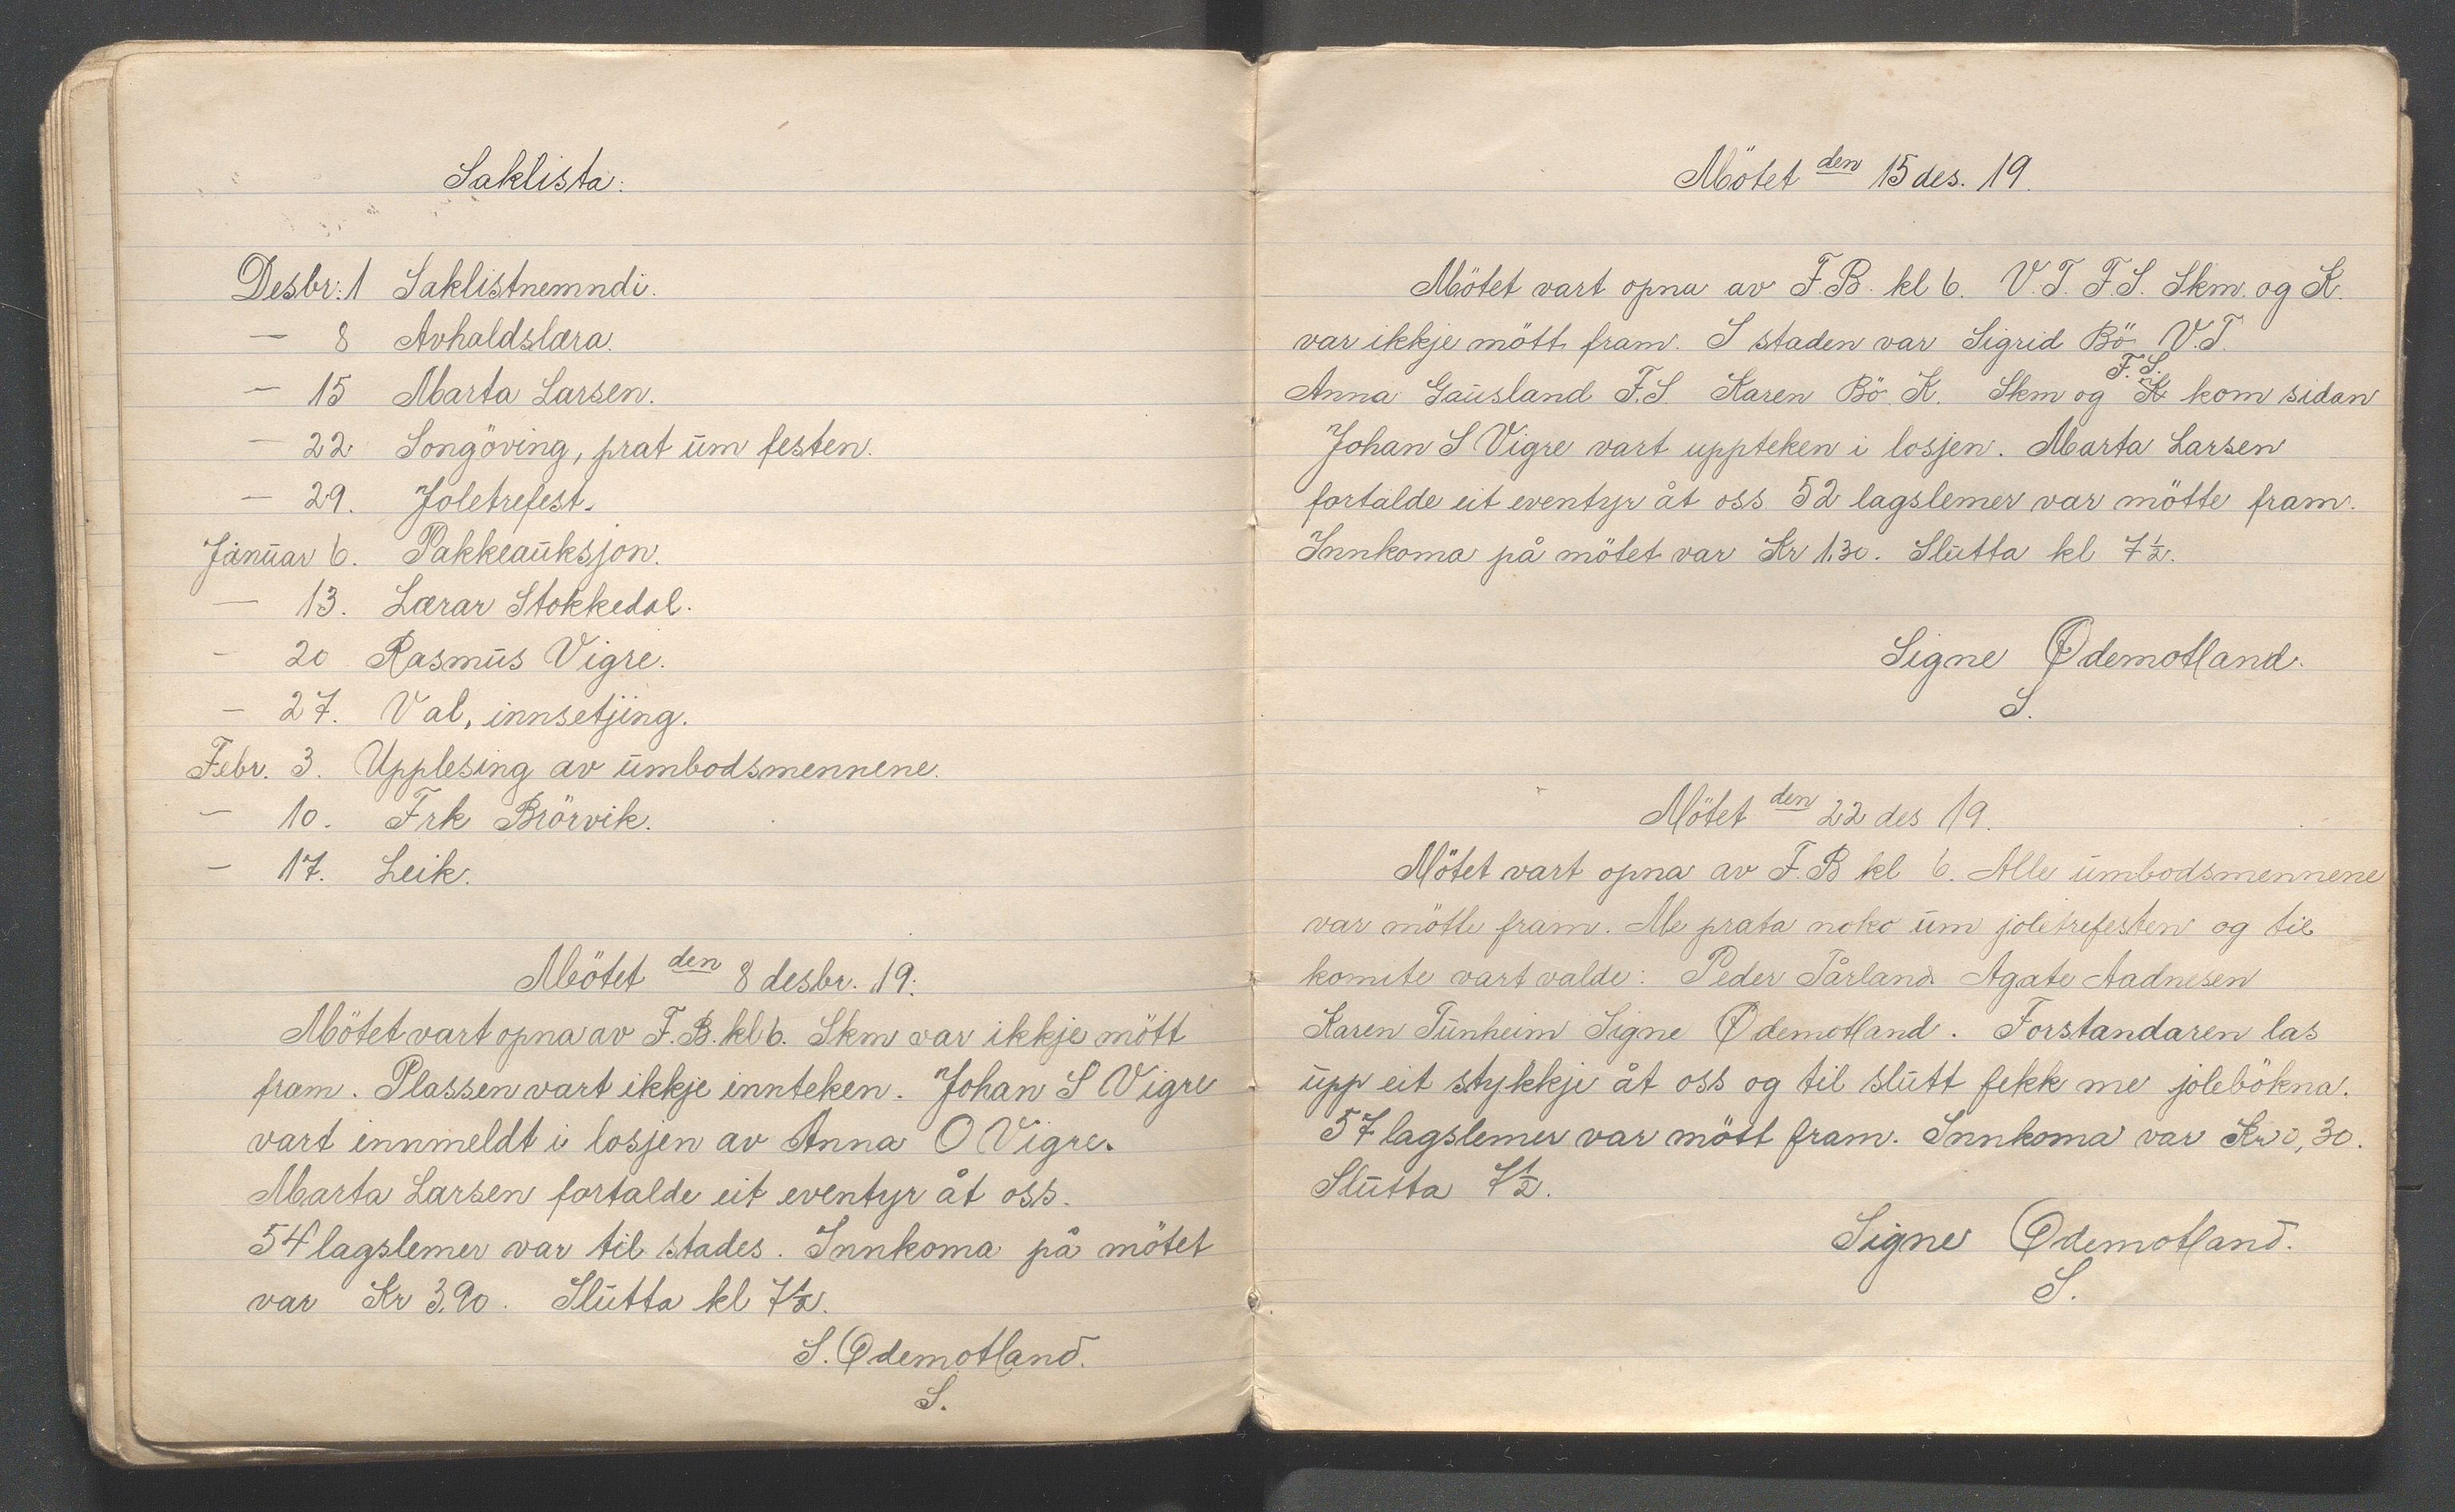 Saklista:
Desbr: 1 Saklistnemndi.
— 8 Avhaldslæra.
— 15 Marta Larsen.
— 22 Songöving, prat um festen.
— 29. Joletrefest.
Januar 6. Pakkeauksjon.
— 13. Lærar Stokkedal.
— 20 Rasmus Vigre.
— 27. Val, innsetjing.
Febr. 3. Upplesing av umbodsmennene.
— 10. Frk Brörvik.
— 17. Leik.
Mötet den 8 desbr. 19.
Mötet vart opna av F.B. kl 6. Skm var ikkje mött
fram. Plassen vart ikkje innteken. Johan S Vigre
vart innmeldt i losjen av Anna O Vigre.
Marta Larsen fortalde eit eventyr åt oss.
54 lagslemer var til stades. Innkoma på mötet
var Kr 3,90. Slutta kl 7½.
S. Ødemotland.
S.
Mötet den 15 des. 19.
Mötet vart opna av F.B. kl 6. V.T. F.S. Skm. og K.
var ikkje mött fram. I staden var Sigrid Bö V.T.
Anna Gausland F.S. Karen Bö K. Skm og F.S. kom sidan
Johan S Vigre vart uppteken i losjen. Marta Larsen
fortalde eit eventyr åt oss 52 lagslemer var mötte fram.
Innkoma på mötet var Kr 1,30. Slutta kl 7½.
Signe Ødemotland.
S.
Mötet den 22 des 19.
Mötet vart opna av F.B kl 6. Alle umbodsmennene
var mötte fram. Me prata noko um joletrefesten og til
komite vart valde: Peder Tårland Agate Aadnesen
Karen Tunheim Signe Ødemotland. Forstandaren las
upp eit stykkje åt oss og til slutt fekk me jolebökna.
57 lagslemer var mött fram. Innkoma var Kr 0,30.
Slutta 7½.
Signe Ødemotland.
S.